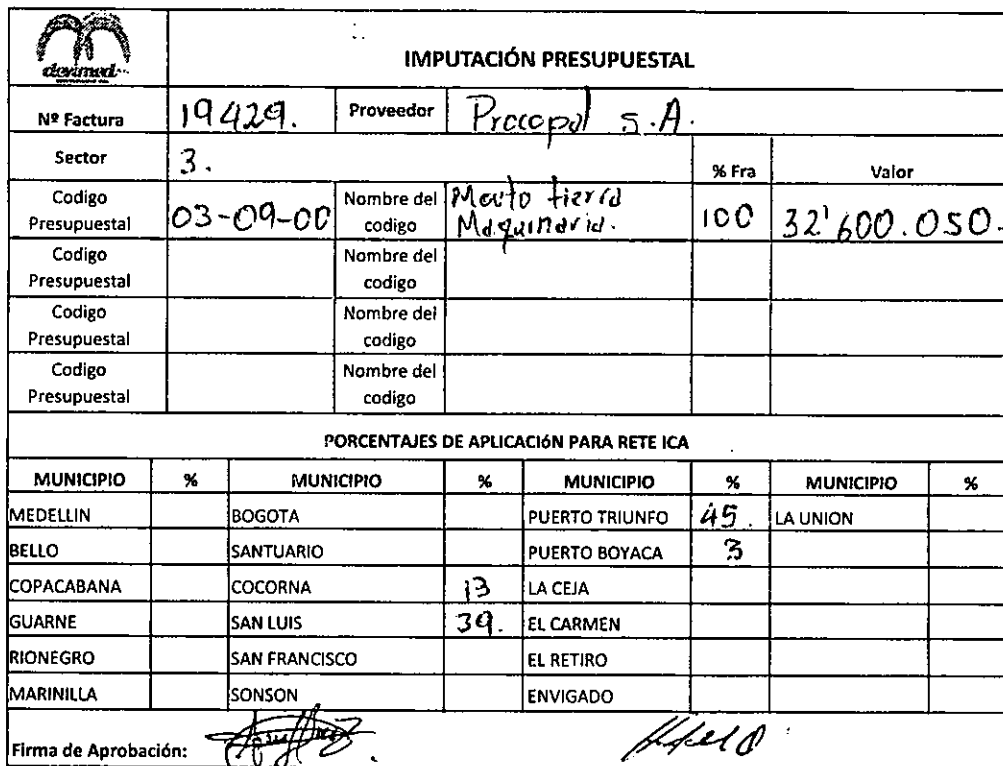 devimed
IMPUTACIÓN PRESUPUESTAL
Nº Factura 19429. Proveedor Procopal S.A.
Sector 3. % Fra Valor
Codigo Presupuestal 03-09-00 Nombre del codigo Mouto tierra Maquinaria. 100 32'600.050.
Codigo Presupuestal Nombre del codigo
Codigo Presupuestal Nombre del codigo
Codigo Presupuestal Nombre del codigo
PORCENTAJES DE APLICACIÓN PARA RETE ICA
MUNICIPIO % MUNICIPIO % MUNICIPIO % MUNICIPIO %
MEDELLIN BOGOTA PUERTO TRIUNFO 45. LA UNION
BELLO SANTUARIO PUERTO BOYACA 3
COPACABANA COCORNA 13 LA CEJA
GUARNE SAN LUIS 39. EL CARMEN
RIONEGRO SAN FRANCISCO EL RETIRO
MARINILLA SONSON ENVIGADO
Firma de Aprobación: